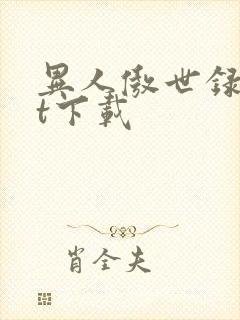 異人傲世録
t下載
肖全夫